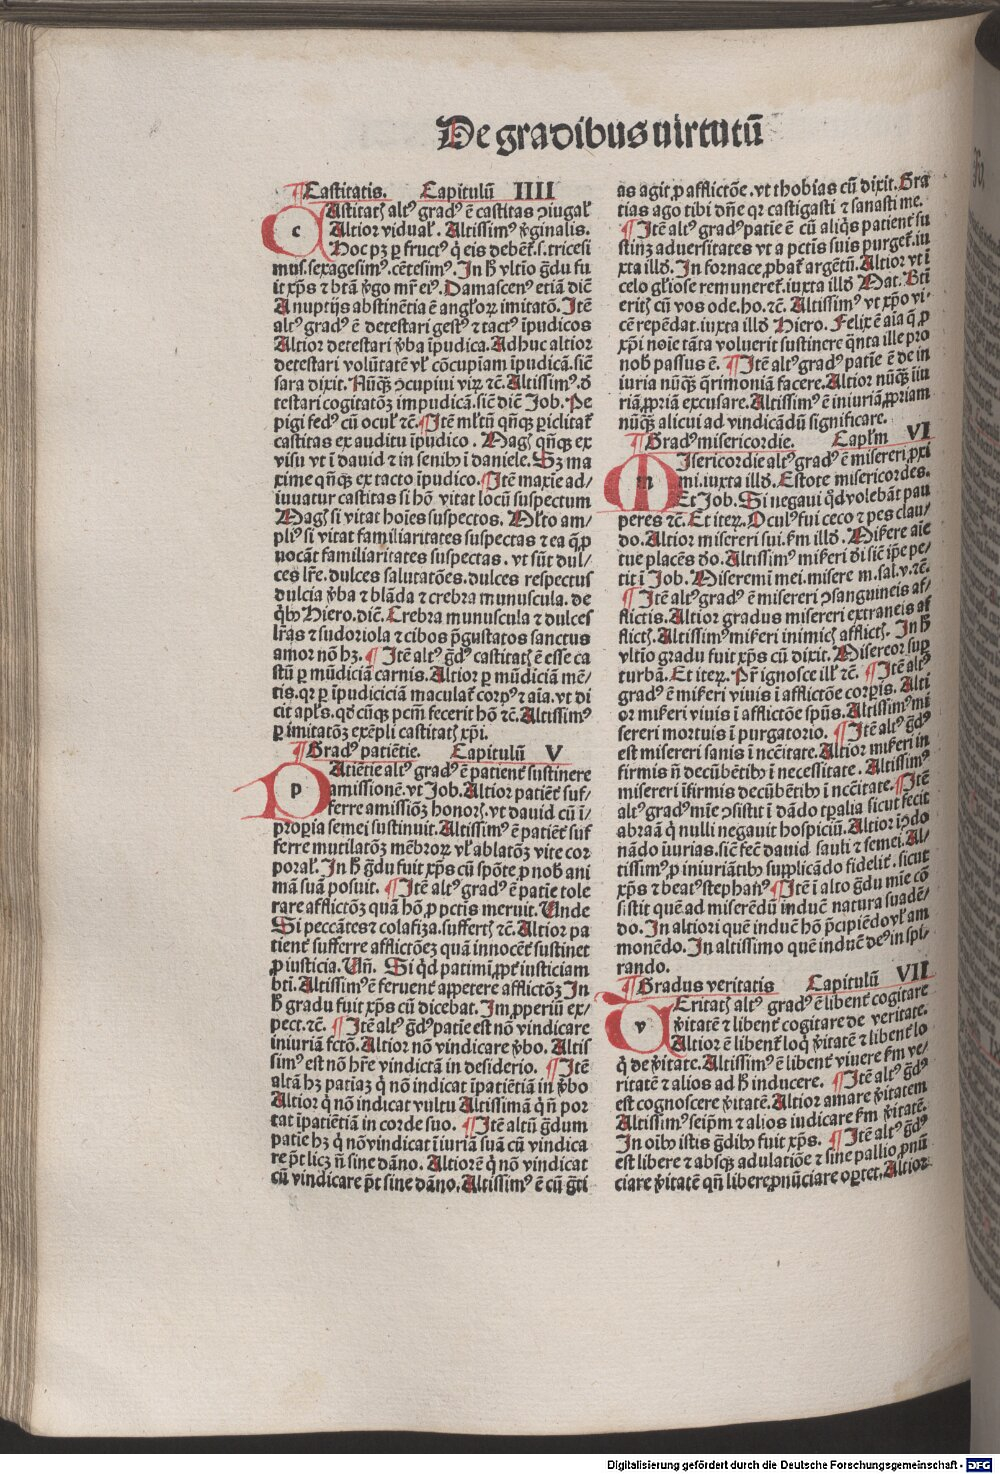 De gradibus uirtutū
¶Castitatis. Capitulū IIII
CAstitatꝭ altꝰ gradꝰ ē castitas ↄiugal̓
Altior vidual̓. Altissimꝰ v̓ginalis.
Hoc pꝫ ꝑ fructꝰ q̇ eis debēt̓.s.tricesi
mus.sexagesimꝰ.cētesimꝰ.In ħ vltio g̃du fu
it xp̄s ⁊ btā v̓go mr̄ eiꝰ. Damascenꝰ etiā diē
A nuptijs abstinētia ē angl̓oꝝ imitatō. Itē
altꝰ gradꝰ ē detestari gestꝰ ⁊ tactꝰ īpudicos
Altior detestari v̓ba īpudica.Adhuc altior
detestari volūtatē vl̓ cōcupiam īpudicā.sic̄
sara dixit. Nūqꝫ ↄcupiui viꝝ ⁊c̄.Altissimꝰ.d̓
testari cogitatōꝫ impudicā.sic̄ diē Job. Pe
pigi fedꝰ cū ocul̓ ⁊c̄.¶Itē ml̓tū qn̄qꝫ ꝑiclitat̓
castitas ex auditu īpudico. Magꝭ qn̄qꝫ ex
visu vt ī dauid ⁊ in senibꝰ ī daniele. Sꝫ ma
xime qn̄qꝫ ex tacto īpudico.¶Itē maxīe ad/
iuuatur castitas si hō vitat locū suspectum
Magꝭ si vitat hoīes suspectos. Ml̓to am/
pliꝰ si vitat familiaritates suspectas ⁊ ea q̄ ꝓ
uocāt familiaritates suspectas. vt sūt dul/
ces lr̄e.dulces salutatōes.dulces respectus
dulcia v̓ba ⁊ blāda ⁊ crebra munuscula. de
qꝰbꝰ Hiero.diē. Crebra munuscula ⁊ dulces
lr̄as ⁊ sudoriola ⁊ cibos p̄gustatos sanctus
amor nō hꝫ. ¶ Itē altꝰ g̃dꝰ castitatꝭ ē esse ca
stū ꝑ mūdiciā carnis.Altior ꝑ mūdiciā mē/
tis.qꝛ ꝑ īpudiciciā maculat̓ corpꝰ ⁊ aīa.vt di
cit apl̓s.qd̓ cūqꝫ pcm̄ fecerit hō ⁊c̄. Altissimꝰ
ꝑ imitatōꝫ exēpli castitatꝭ xp̄i.
¶Gradꝰ patiētie. Capitulū V
PAtiētie altꝰ gradꝰ ē patient̓ sustinere
amissionē.vt Job.Altior patiēt̓ suf/
ferre amissiōꝫ honorꝭ.vt dauid cū ī/
propria semei sustinuit.Altissimꝰ ē patiēt̓ suf
ferre mutilatōꝫ mēbroꝝ vl̓ ablatōꝫ vite cor
poral̓.In ħ g̃du fuit xp̄s cū spōte ꝓ nob̓ ani
mā suā posuit. ¶Itē altꝰ gradꝰ ē patīe tole
rare afflictōꝫ quā hō ꝓ pctīs meruit. Unde
Si peccātes ⁊ colafiza.suffertꝭ ⁊c̄.Altior pa
tient̓ sufferre afflictōeꝫ quā innocēt̓ sustinet
ꝓ iusticia.Un̄. Si qd̓ patimī ꝓpt̓ iusticiam
bti.Altissimꝰ ē feruent̓ appetere afflictōꝫ In
ħ gradu fuit xp̄s cū dicebat. Imꝓperiū ex/
pect.⁊c̄. ¶Itē altꝰ g̃dꝰ patīe est nō vindicare
iniuriā fctō.Altior nō vindicare v̓bo. Altis
simꝰ est nō hr̄e vindictā in desiderio. ¶Itē
altā hꝫ patiaꝫ q̇ nō indicat īpatiētiā in v̓bo
Altior q̇ nō indicat vultu Altissimā q̇ n̄ por
tat īpatiētiā in corde suo. ¶Itē altū g̃dum
patīe hꝫ q̇ nō vindicat īiuriā suā cū vindica
re p̄t licꝫ n̄ sine dāno. Altiorē q̇ nō vindicat
cū vindicare p̄t sine dāno.Altissimꝰ ē cū g̃ti
as agit ꝓ afflictōe.vt thobias cū dixit.Gra
tias ago tibi dn̄e qꝛ castigasti ⁊ sanasti me.
¶Itē altꝰ gradꝰ patīe ē cū aliq̇s patient̓ su
stinꝫ aduersitates vt a pctīs suis purget̓.iu
xta illd̓. In fornace ꝓbat̓ argētū.Altior vt ī
celo gl̓iose remuneret̓.iuxta illd̓ Mat. Btī
eritꝭ cū vos ode.ho.⁊c̄. Altissimꝰ vt xp̄o vi/
cē repēdat.iuxta illd̓ Hiero. Felix ē aīa q̄ ꝓ
xp̄i noīe tāta voluerit sustinere q̄nta ille pro
nob̓ passus ē. ¶Itē altꝰ gradꝰ patīe ē de in
iuria nūqꝫ q̄rimoniā facere.Altior nūqꝫ īiu
riā ꝓpriā excusare.Altissimꝰ ē iniuriā ꝓpriam
nūqꝫ alicui ad vindicādū significare.
¶Gradꝰ misericordie. Capl̓m VI
MIsericordie altꝰ gradꝰ ē misereri ꝓxi
mi.iuxta illd̓. Estote misericordes.
Et Job. Si negaui qd̓ volebāt pau
peres ⁊c̄. Et iteꝝ. Oculꝰ fui ceco ⁊ pes clau/
do.Altior misereri sui.ẜm illd̓. Mis̓ere aīe
tue placēs d̓o.Altissimꝰ mis̓eri d̓i sic̄ ip̄e pe/
tit ī Job. Miseremī mei.misere m.sal.v.⁊c̄.
¶Itē altꝰ gradꝰ ē misereri ↄsanguineis af/
flictis. Altior gradus misereri extraneis af
flictꝭ.Altissimꝰ mis̓eri inimicꝭ afflictꝭ. In ħ
vltio gradu fuit xp̄s cū dixit. Misereor suꝑ
turbā. Et iteꝝ. Pr̄ ignosce ill̓ ⁊c̄. ¶Itē altꝰ
gradꝰ ē mis̓eri viuis ī afflictōe corꝑis. Alti
or mis̓eri viuis ī afflictōe sp̄us. Altissimꝰ mi
sereri mortuis ī purgatorio. ¶Itē altꝰ g̃dꝰ
est misereri sanis ī nc̄citate.Altior mis̓eri in
firmis n̄ decūbētibꝰ ī necessitate. Altissimꝰ
misereri īfirmis decūbētibꝰ ī nc̄citate.¶Itē
altꝰ gradꝰ mīe ↄsistit ī dādo tꝑalia sicut fecit
abraā q̇ nulli negauit hospiciū.Altior ī ↄdo
nādo iīurias.sic̄ fec̄ dauid sauli ⁊ semei.Al/
tissimꝰ ꝓ iniuriātibꝰ supplicādo fidelit̓. sicut
xp̄s ⁊ beatꝰ stephanꝰ ¶Itē ī alto g̃du mīe cō
sistit quē ad miserēdū īducit natura suadē/
do.In altiori quē inducit hō p̄cipiēdo vl̓ am
monēdo. In altissimo quē inducit deꝰ in spi/
rando.
¶Gradus veritatis Capitulū VII
VEritatꝭ altꝰ gradꝰ ē libent̓ cogitare
v̓itatē ⁊ libent̓ cogitare de veritate.
Altior ē libent̓ loq̇ v̓itatē ⁊ libent̓ lo
q̇ de v̓itate.Altissimꝰ ē libent̓ viuere ẜm ve/
ritatē ⁊ alios ad ħ inducere. ¶Itē altꝰ g̃dꝰ
est cognoscere v̓itatē.Altior amare v̓itatem
Altissimꝰ seip̄m ⁊ alios iudicare ẜm v̓itatē.
In oībꝰ istis g̃dibꝰ fuit xp̄s. ¶Itē altꝰ g̃dꝰ
est libere ⁊ absqꝫ adulatiōe ⁊ sine pallio ꝓnū
ciare v̓itatē qn̄ libere ꝓnūciare oꝑtet.Altior
Digitalisierung gefördert durch die Deutsche Forschungsgemeinschaft - DFG